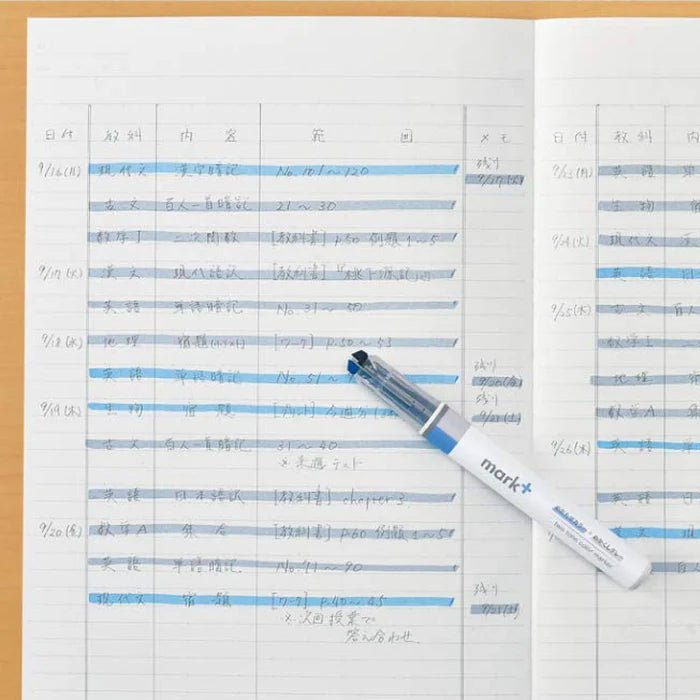 日付 教科 内容 範囲 メモ
9/16(月) 現代文 漢字暗記 No.101〜120 残り
9/27(火)
古文 百人一首暗記 21〜30
数学I 二次関数 [教科書] p.50 例題1〜5
9/17(火) 漢文 現代語訳 [教科書]「桃下源記」
英語 単語暗記 No.31〜50
9/18(水) 地理 宿題 [ワーク] p.50〜53
英語 単語暗記 No.51〜 残り
9/20(金)
9/19(木) 生物 宿題 [プリント] 今週分 残り
9/21(土)
古文 百人一首暗記 31〜40
※来週テスト
英語 日本語訳 [教科書] chapter 3
9/20(金) 数学A 集合 [教科書] p.60 例題1〜5
英語 単語暗記 No.71〜90
現代文 宿題 [ワーク] p.40〜45 残り
9/21(土)
※次回授業で
答え合わせ
mark+
two tone color marker
日付 教科 内
9/23(月) 英語 単
生物 宿
9/24(火) 現代文 漢
英語
9/25(水) 古文 百人
数学I
地理 宿
数学A
9/26(木) 英語
英語
古文